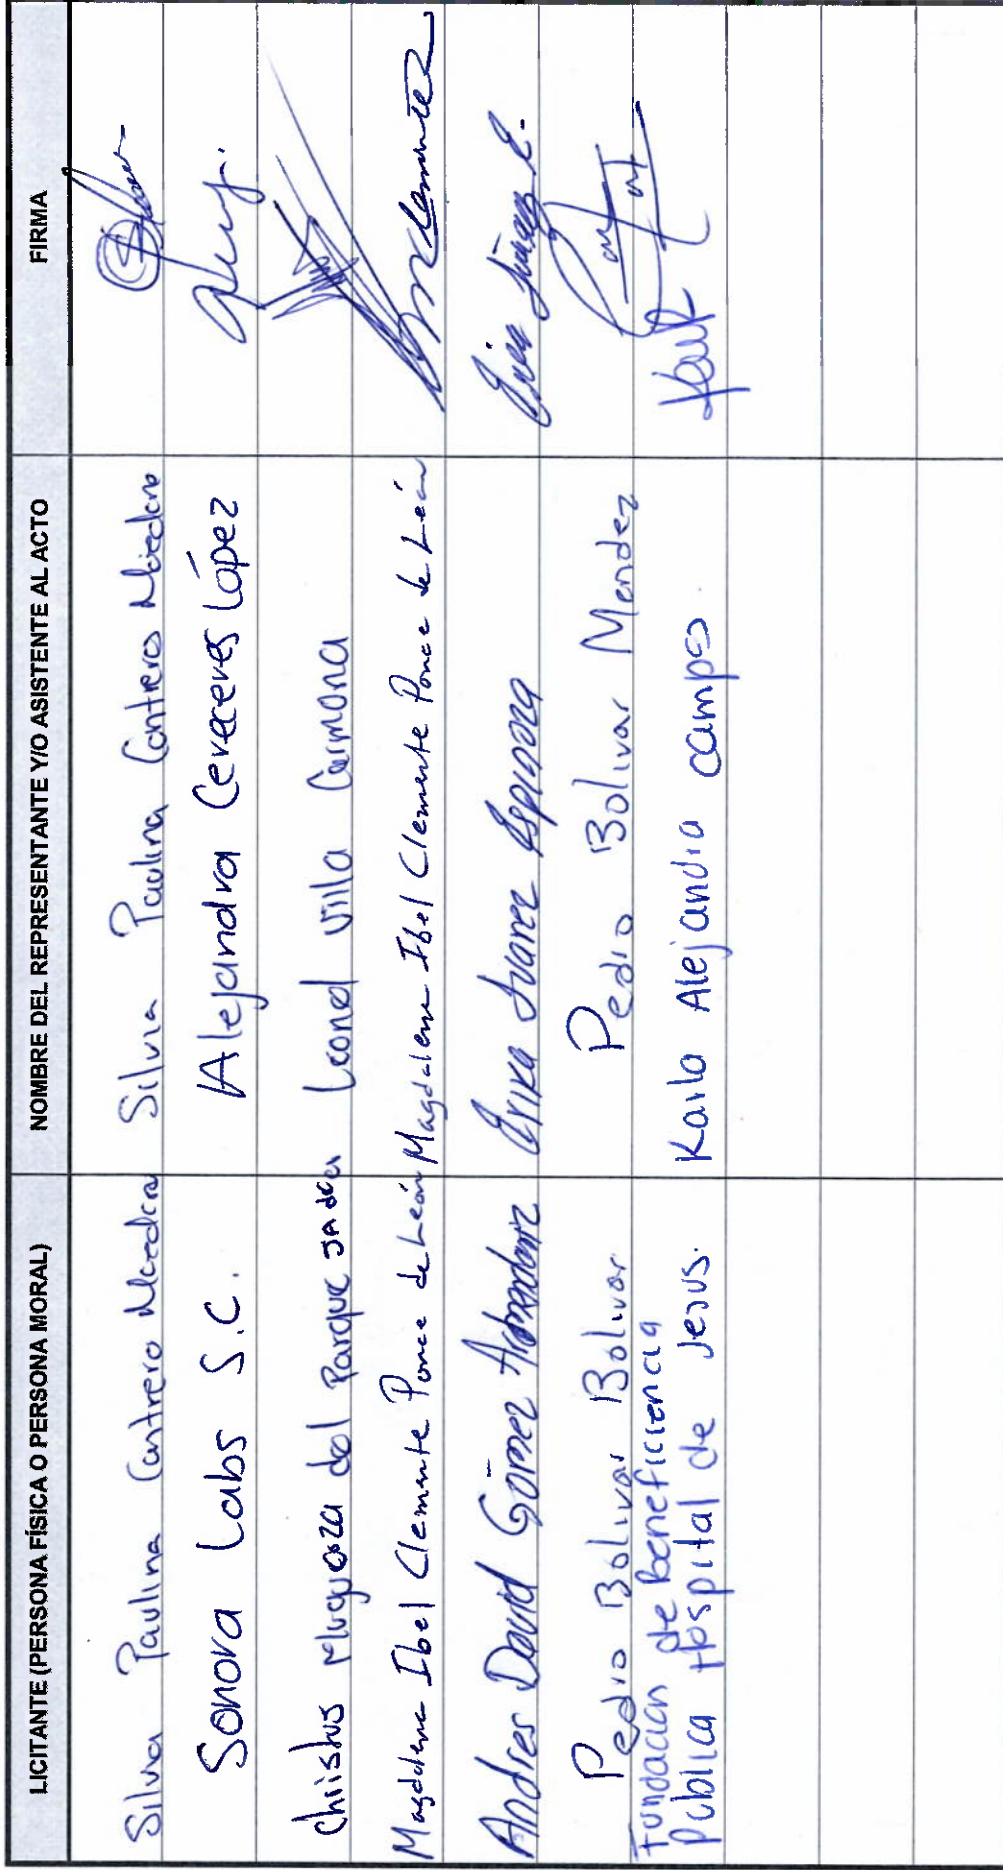 LICITANTE (PERSONA FÍSICA O PERSONA MORAL) NOMBRE DEL REPRESENTANTE Y/O ASISTENTE AL ACTO FIRMA
Silvia Paulina Contrero Silvia Paulina Contrero
Sonora Labs S.C. Alejandra Cereceres López
Christus Muguerza del Parque SA de CV Leonel Villa Carmona
Magdalena Ibel Clemente Ponce de León Magdalena Ibel Clemente Ponce de León Clemente
Andres David Gómez Erika Juarez Espinoza Erika Juárez E.
Pedro Bolivar Bolivar Pedro Bolivar Mendez
Fundación de Beneficiencia
Publica Hospital de Jesus. Karla Alejandra Campos.